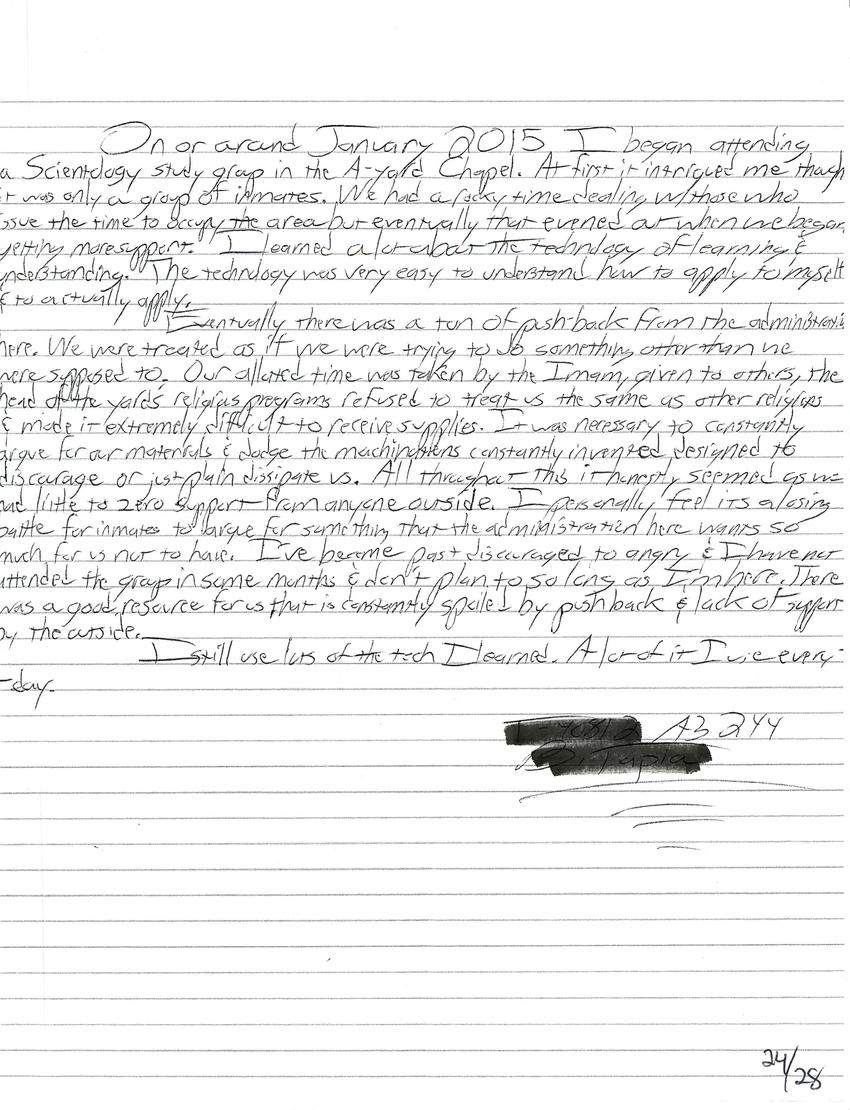 On or around January 2015 I began attending
a Scientology study group in the A-yard Chapel. At first it intrigued me though
it was only a group of inmates. We had a rocky time dealing w/those who
issue the time to occupy the area but eventually that evened out when we began
getting more support. I learned a lot about the technology of learning &
understanding. The technology was very easy to understand how to apply to myself
& to actually apply.
Eventually there was a ton of push-back from the administrati
here. We were treated as if we were trying to do something other than we
were supposed to. Our alloted time was taken by the Imam, given to others, the
head of the yards religious programs refused to treat us the same as other religions
& made it extremely difficult to receive supplies. It was necessary to constantly
argue for our materials & dodge the machinations constantly invented designed to
discourage or just plain dissipate us. All throughout this it honestly seemed as we
had little to zero support from anyone outside. I personally feel its a losing
battle for inmates to argue for something that the administration here wants so
much for us not to have. I've become past discouraged to angry & I have not
attended the group in some months & don't plan to so long as I'm here. There
was a good resource for us that is constantly spoiled by push back & lack of support
by the outside.
I still use lots of the tech I learned. A lot of it I use every-
-day.
A3 244
24/28